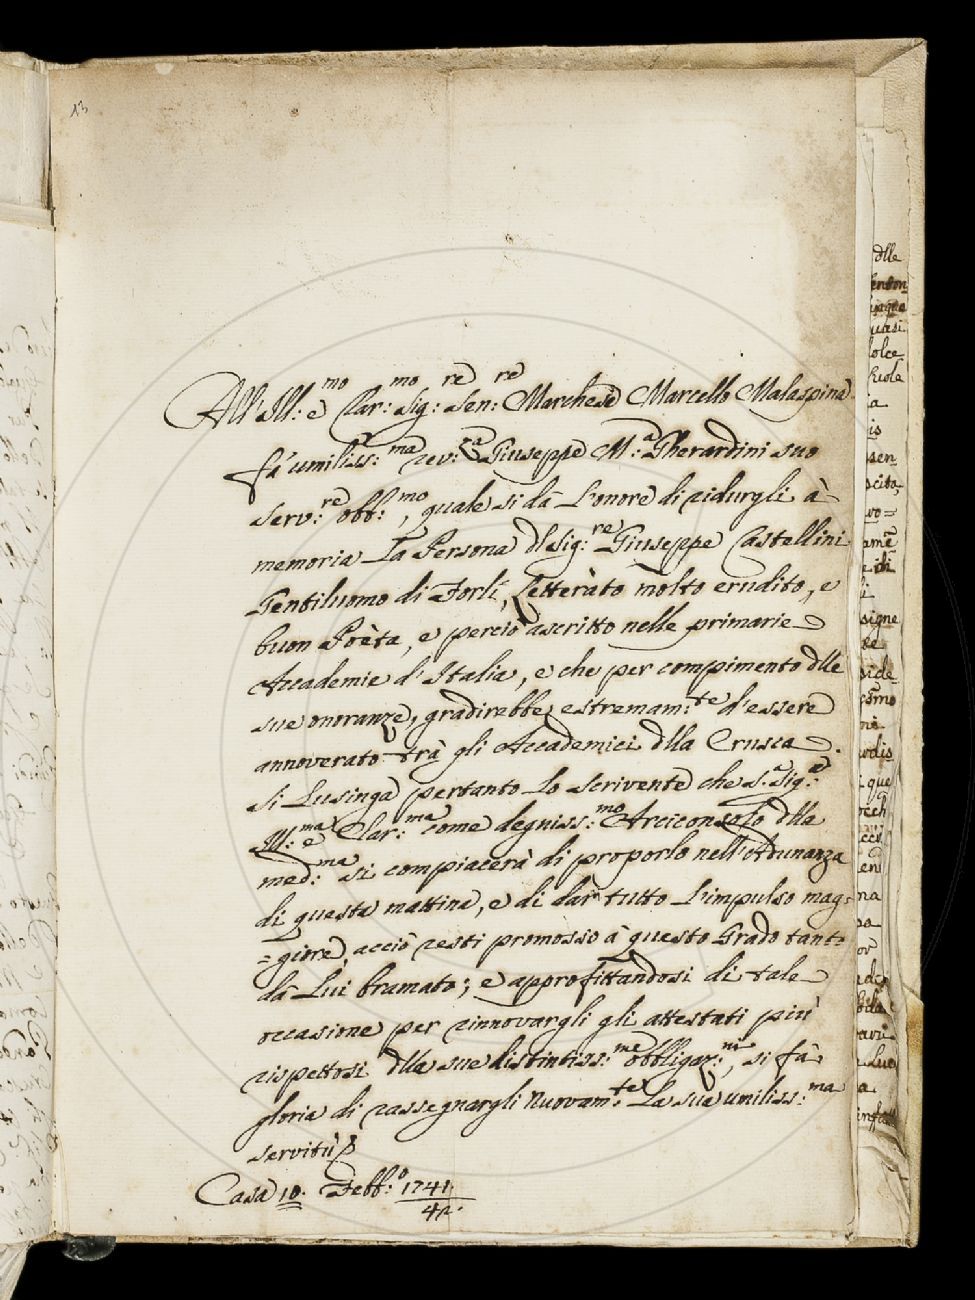 13
All' Ill:mo e Car:mo Sig:re Sen:re Marchese Marcello Malaspina
fà umiliss:ma rev:za Giuseppe M:a Gherardini suo
serv:re obb:mo, quale si da L'onore di ridurgli à
memoria La Persona dl Sig:re Giuseppe Castellini
Gentiluomo di Forlì, Letteràto molto erudito, e
buon Poèta, e perciò ascritto nelle primarie
Accademie d'Italia, e che per compimento dlle
sue onoranze, gradirebbe estremam:te d'essere
annoverato trà gli Accademici dlla Crusca.
Si Lusinga pertanto Lo scrivente che S.a Sig:a
Ill:ma e Clar:ma come degniss:mo Arciconsolo dlla
med:ma si compiacerà di proporlo nell'Adunanza
di questa mattina, e di dar tutto L'impulso mag=
=giore, acciò resti promosso à questo Grado tanto
dà Lui bramato; e approfittandosi di tale
occasione per rinnovargli gli attestati più
rispettosi dlla sue distintiss:me obbligaz:ni, si fà
gloria di rassegnargli nuovam:te La sua umiliss:ma
servitù
Casa 10. Febb:o 1741/42.
dlle
quasi
dolce
la
is
sen
scito,
vo=
ame
e di
li
signe
te
side
como
que
eni
na
or
Luo
a